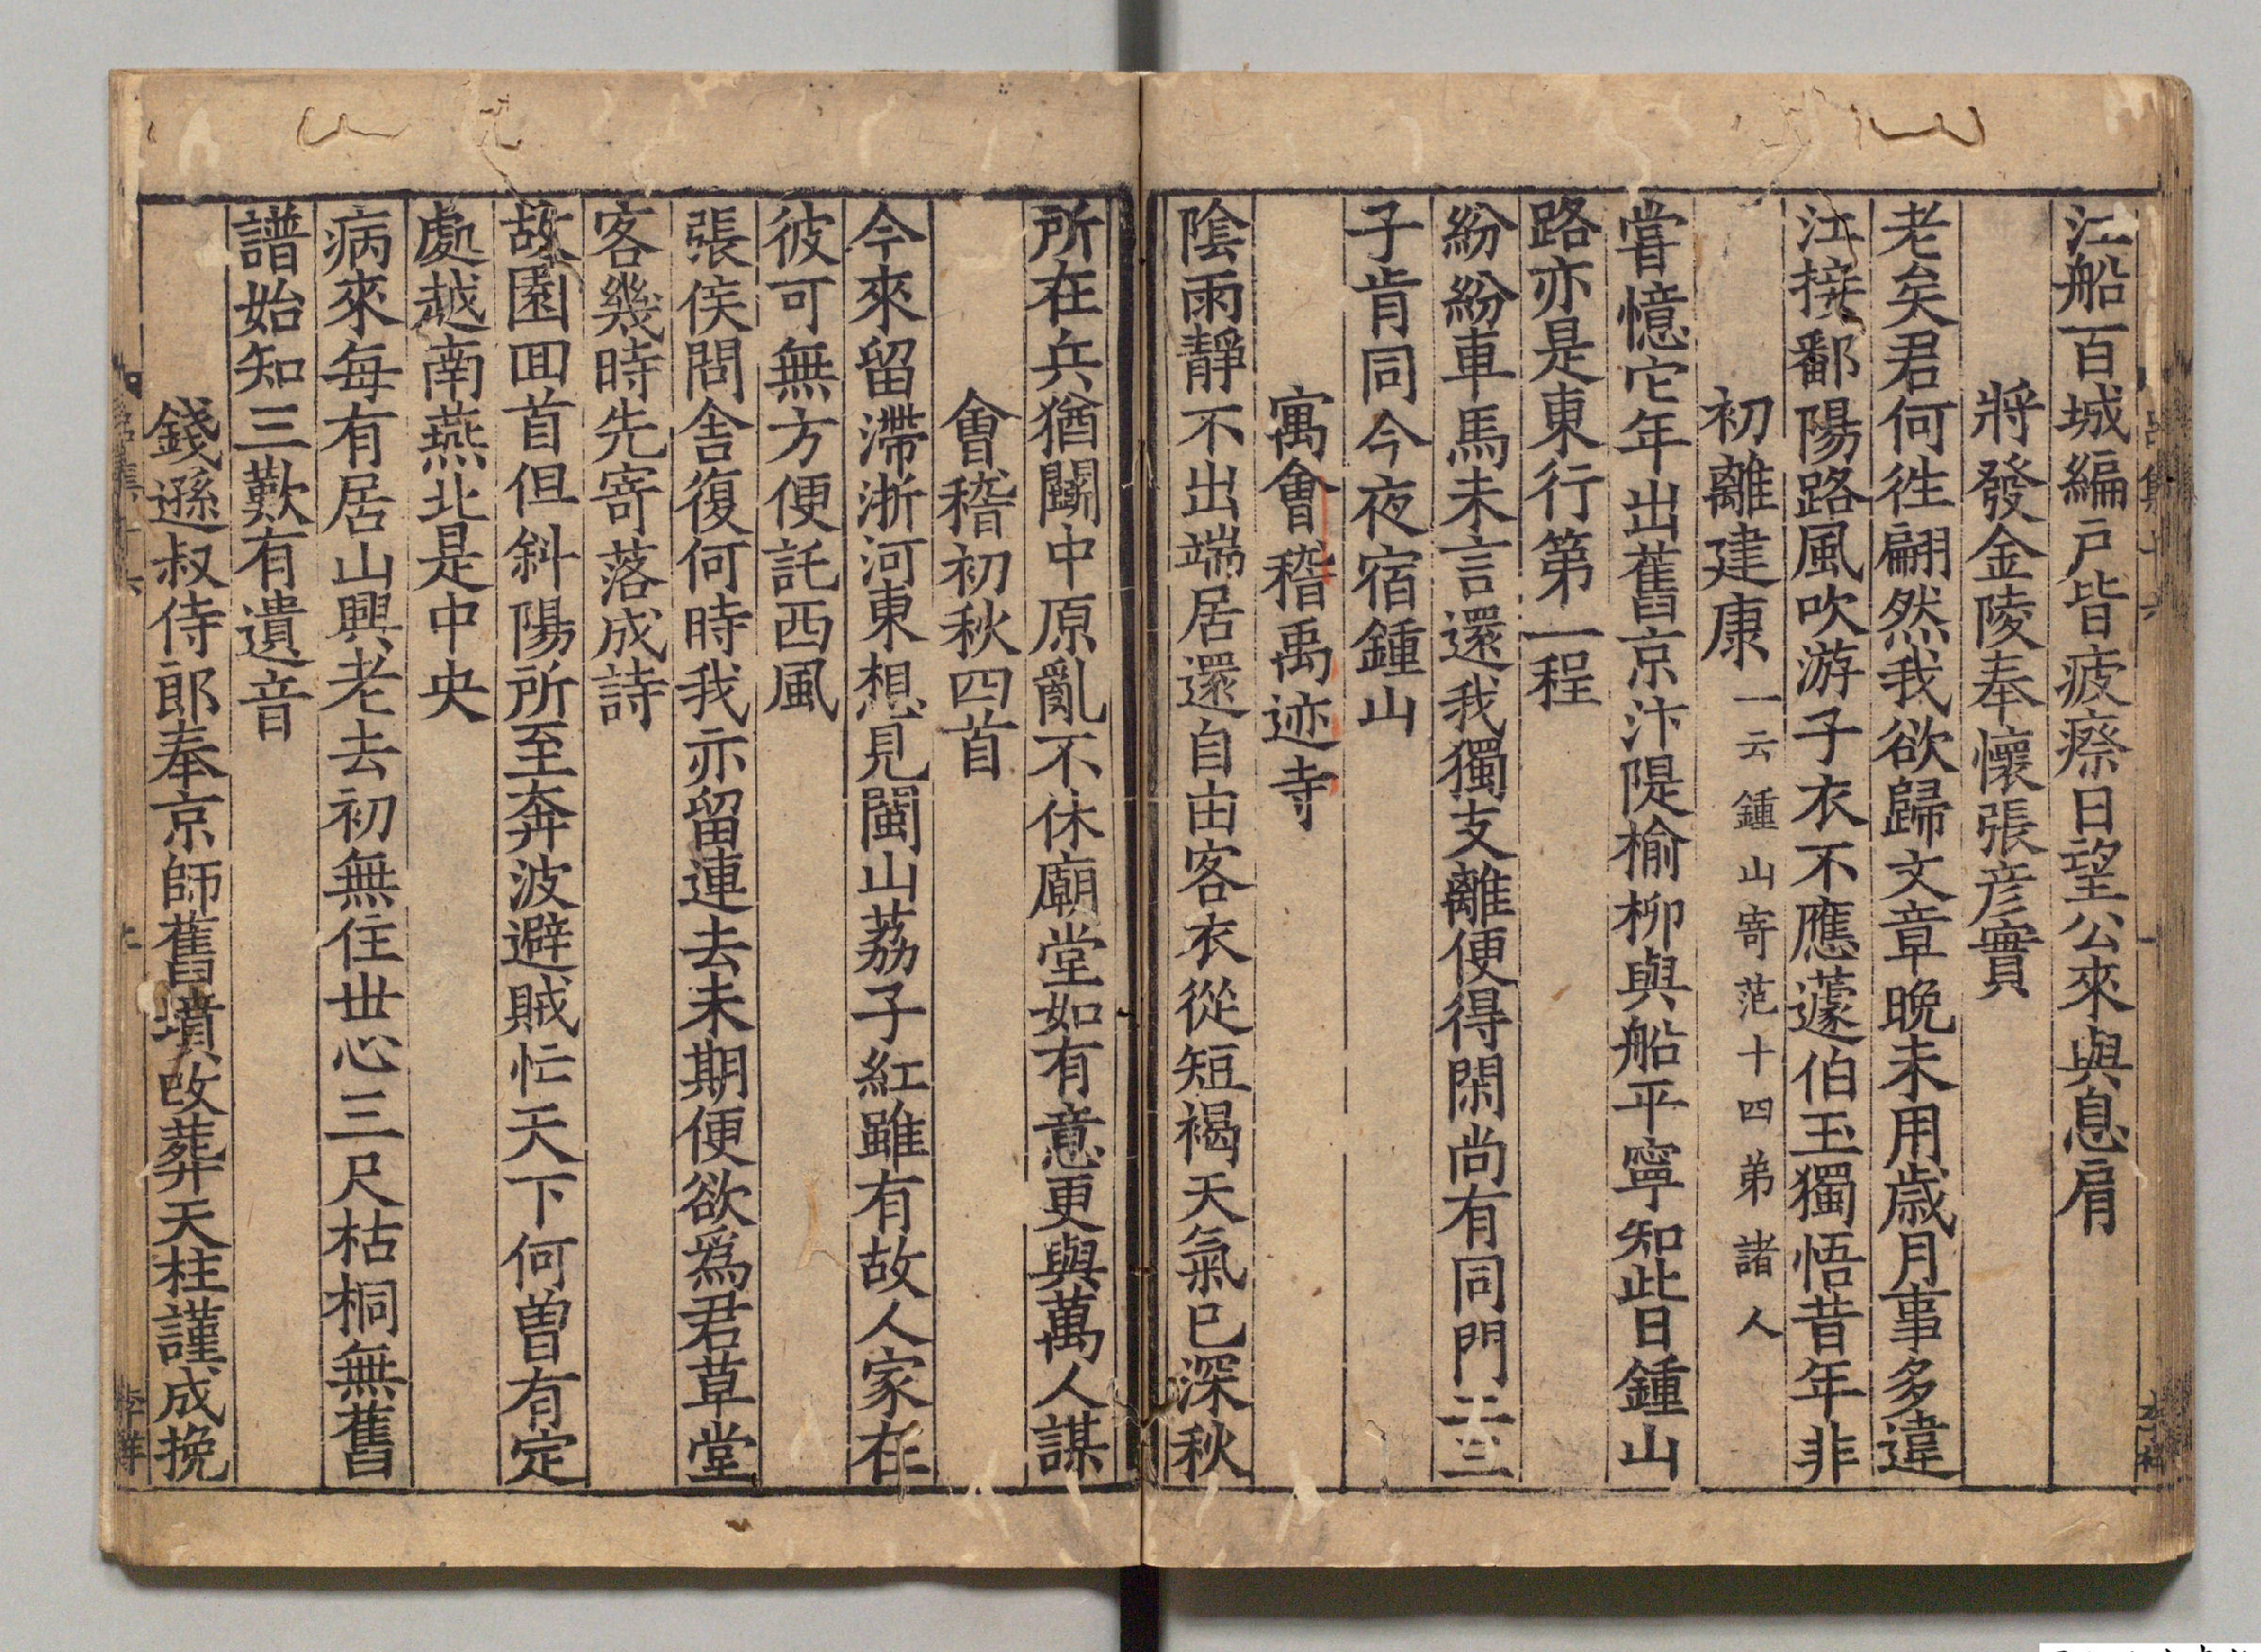 江船百城編戶皆疲瘵日望公來與息肩
將發金陵奉懷張彥實
老矣君何徃翩然我欲歸文章晚未用歲月事多違
江接鄱陽路風吹游子衣不應蘧伯玉獨悟昔年非
初離建康一云鍾山寄范十四弟諸人
嘗憶它年出舊京汴隄榆柳與船平寧知此日鍾山
路亦是東行第一程
紛紛車馬未言還我獨支離便得閑尚有同門二三
子肯同今夜宿鍾山
寓會稽禹迹寺
陰雨靜不出端居還自由客衣從短褐天氣已深秋
所在兵猶鬭中原亂不休廟堂如有意更與萬人謀
會稽初秋四首
今來留滯浙河東想見閩山荔子紅雖有故人家在
彼可無方便託西風
張侯問舍復何時我亦留連去未期便欲爲君草堂
客幾時先寄落成詩
故園囬首但斜陽所至奔波避賊忙天下何曾有定
處越南燕北是中央
病來每有居山興老去初無住世心三尺枯桐無舊
譜始知三歎有遺音
錢遜叔侍郎奉京師舊墳改葬天柱謹成挽